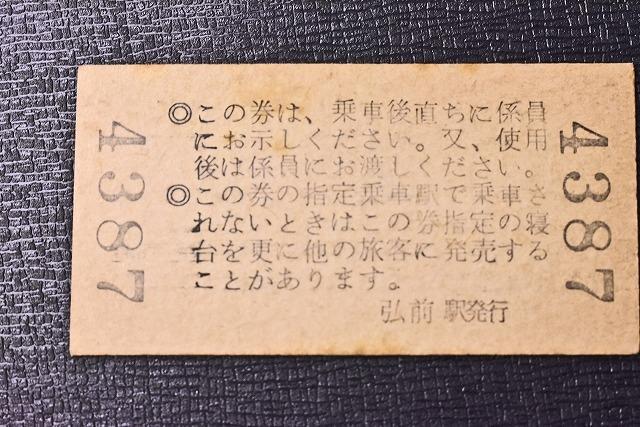 ◎この券は、乗車後直ちに係員
にお示しください。又、使用
後は係員にお渡しください。
◎この券の指定乗車駅で乗車さ
れないときはこの券指定の寝
台を更に他の旅客に発売する
ことがあります。
弘前駅発行
4387
4387